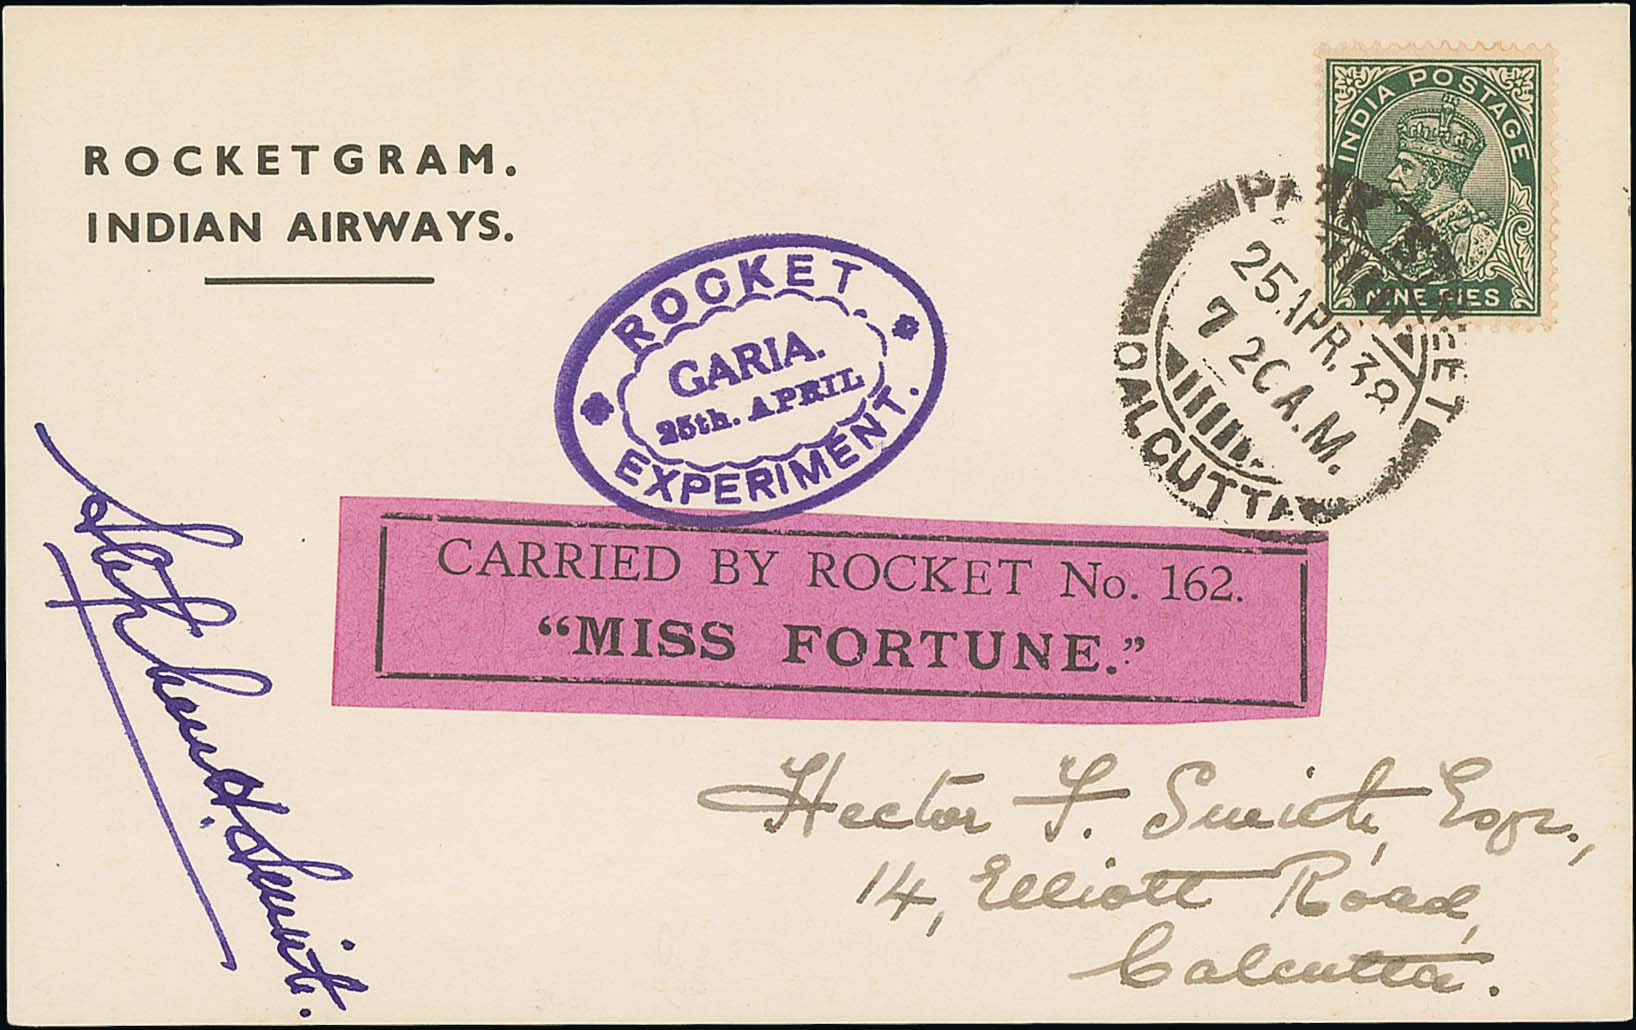 ROCKETGRAM.
INDIAN AIRWAYS.
INDIA POSTAGE
NINE PIES
PARK STREET
25 APR. 38
7 20 A.M.
CALCUTTA
ROCKET
GARIA.
25th. APRIL
EXPERIMENT.
CARRIED BY ROCKET No. 162.
“MISS FORTUNE.”
Stephen H. Smith.
Hector F. Smith, Esqr.,
14, Elliott Road,
Calcutta.